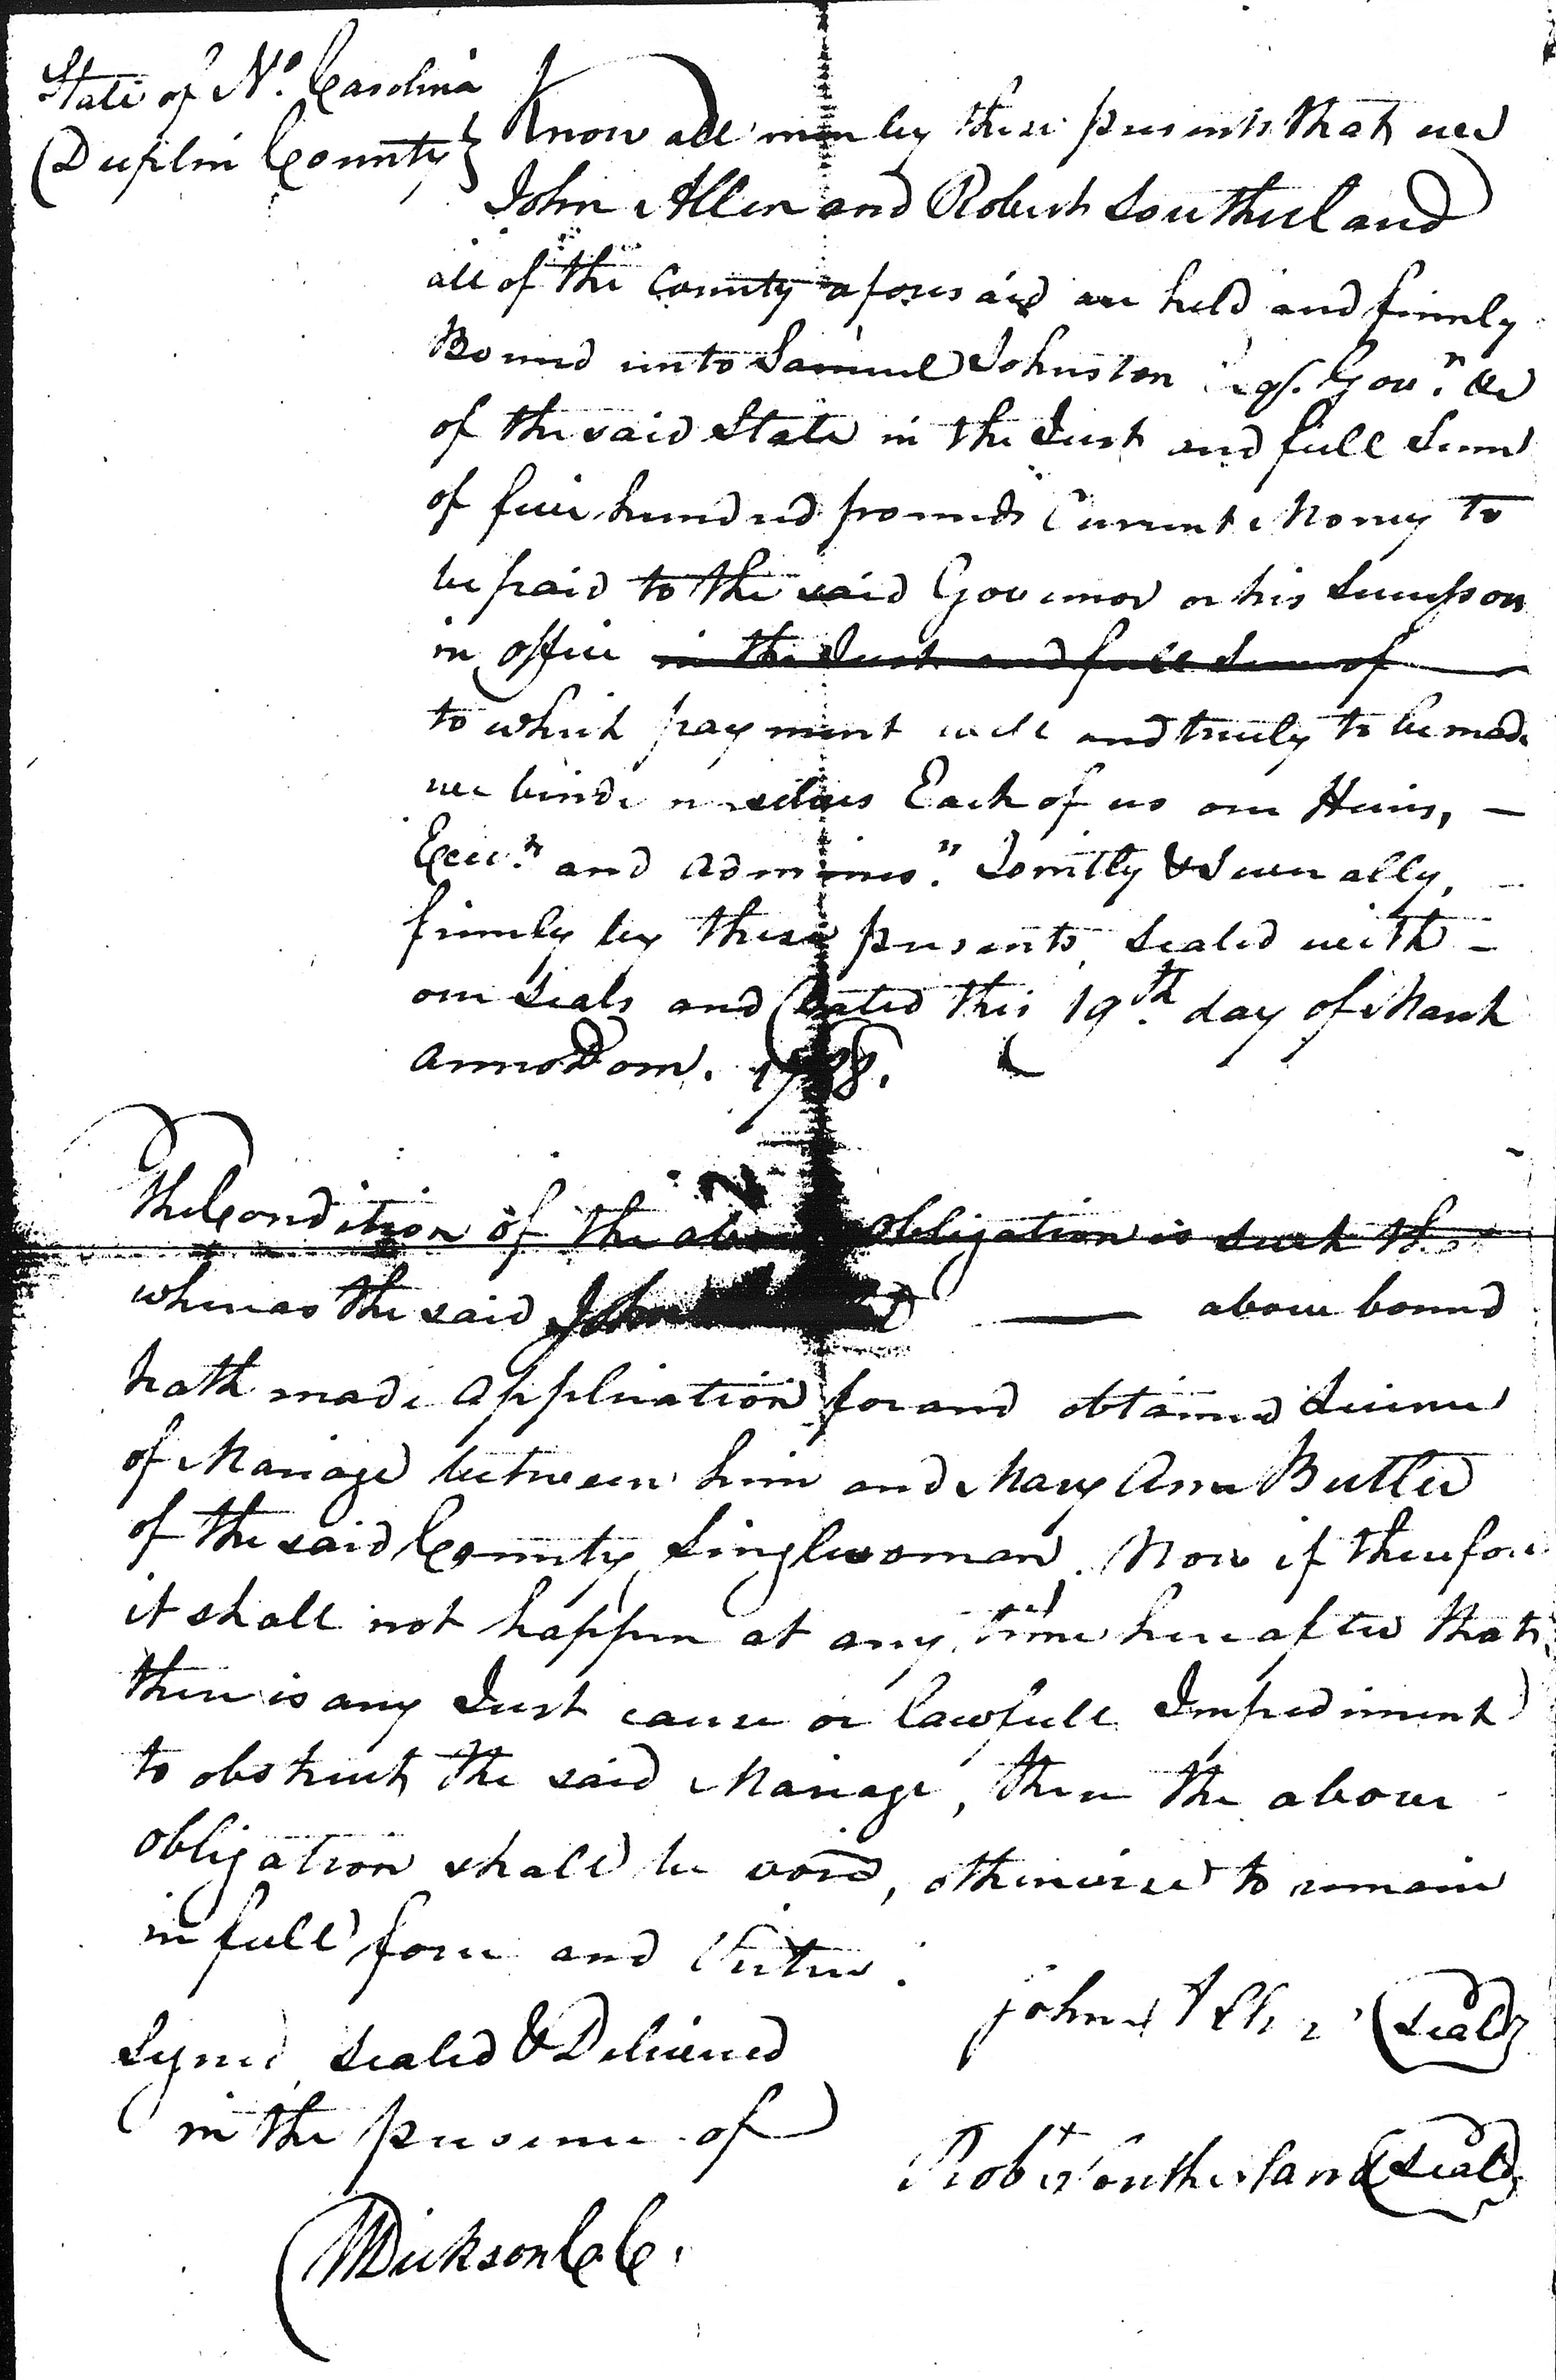 State of No. Carolina
Duplin County } Know all men by these presents that wee
John Allen and Robert Southerland
all of the County aforesaid are held and firmly
Bound unto Samuel Johnston Esqr. Govr. &c
of the said State in the Just and full Sum
of five hundred pounds Current Money to
be paid to the said Governor or his Successors
in office in the Just and full Sum of
to which payment well and truly to be made
we binde ourselves Each of us our Heirs, —
Execrs. and Adminisrs. Jointly & Severally, —
firmly by these presents, Sealed with —
our Seals and Dated this 19th. day of March
Anno Dom. 1788.
The Condition of the above obligation is such th
whereas the said John — above bound
hath made Application for and obtained Licence
of Mariage between him and Mary Ann Butler
of the said County, Singlewoman. Now if therefore
it shall not happen at any time hereafter that
there is any Just cause or lawfull Impediment
to obstruct the said Mariage, then the above
obligation shall be void, otherwise to remain
in full force and Virtue.
John Allen (Seal)
Signed, Sealed & Delivered
in the presence of
Robt Southerland (Seal)
WDickson C.C.